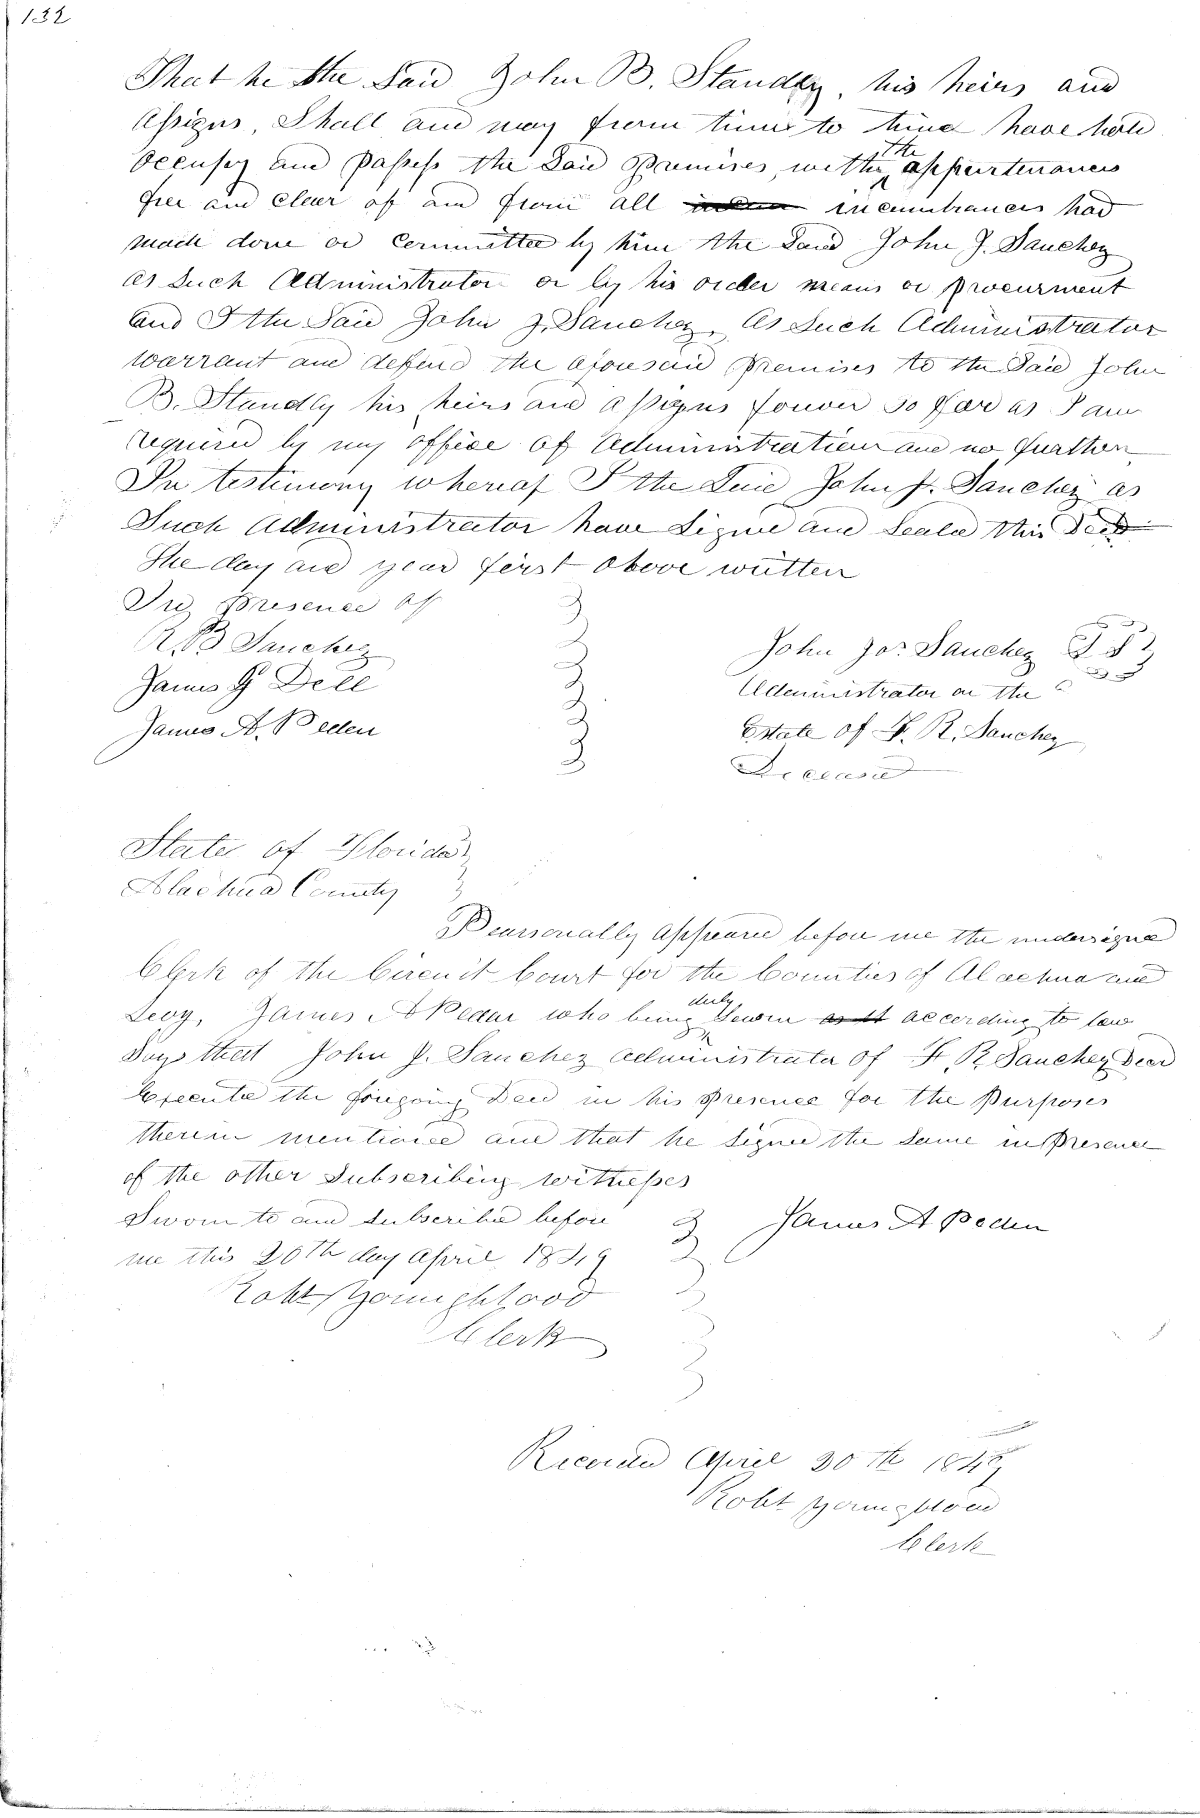 132
That he the Said John B. Standly, his heirs and
Assigns, Shall and may from time to time have hold
Occupy and Possess the Said Premises, with the appurtenances
free and Clear of and from all incumbrances had
made done or Committed by him the Said John J. Sanchez
as Such Administrator or by his order means or procurment
and I the Said John J. Sanchez, As Such Administrator
warrant and defend the aforesaid premises to the Said John
B. Standly his heirs and assigns forever so far as I am
required by my office of Administration and no further
In testimony whereof I the Said John J. Sanchez as
Such Administrator have Signed and Sealed this Deed
The day and year first above written
In presence of
R. B Sanchez
James G Dell
James A. Peden
John Jos. Sanchez L S
Administrator on the
Estate of F. R. Sanchez
Deceased
State of Florida
Alachua County
Pearsonally appeared before me the undersigned
Clerk of the Circuit Court for the Counties of Alachua and
Levy, James A Peden who being duly Sworn according to law
Says that John J. Sanchez Administrator of F. R. Sanchez Decd
Executed the foregoing Deed in his Presence for the Purposes
therein mentioned and that he Signed the Same in Presence
of the other Subscribing witnesses
Sworn to and Subscribed before
me this 20th day April 1849
James A Peden
Robt Youngblood
Clerk
Recorded April 20th 1849
Robt Youngblood
Clerk